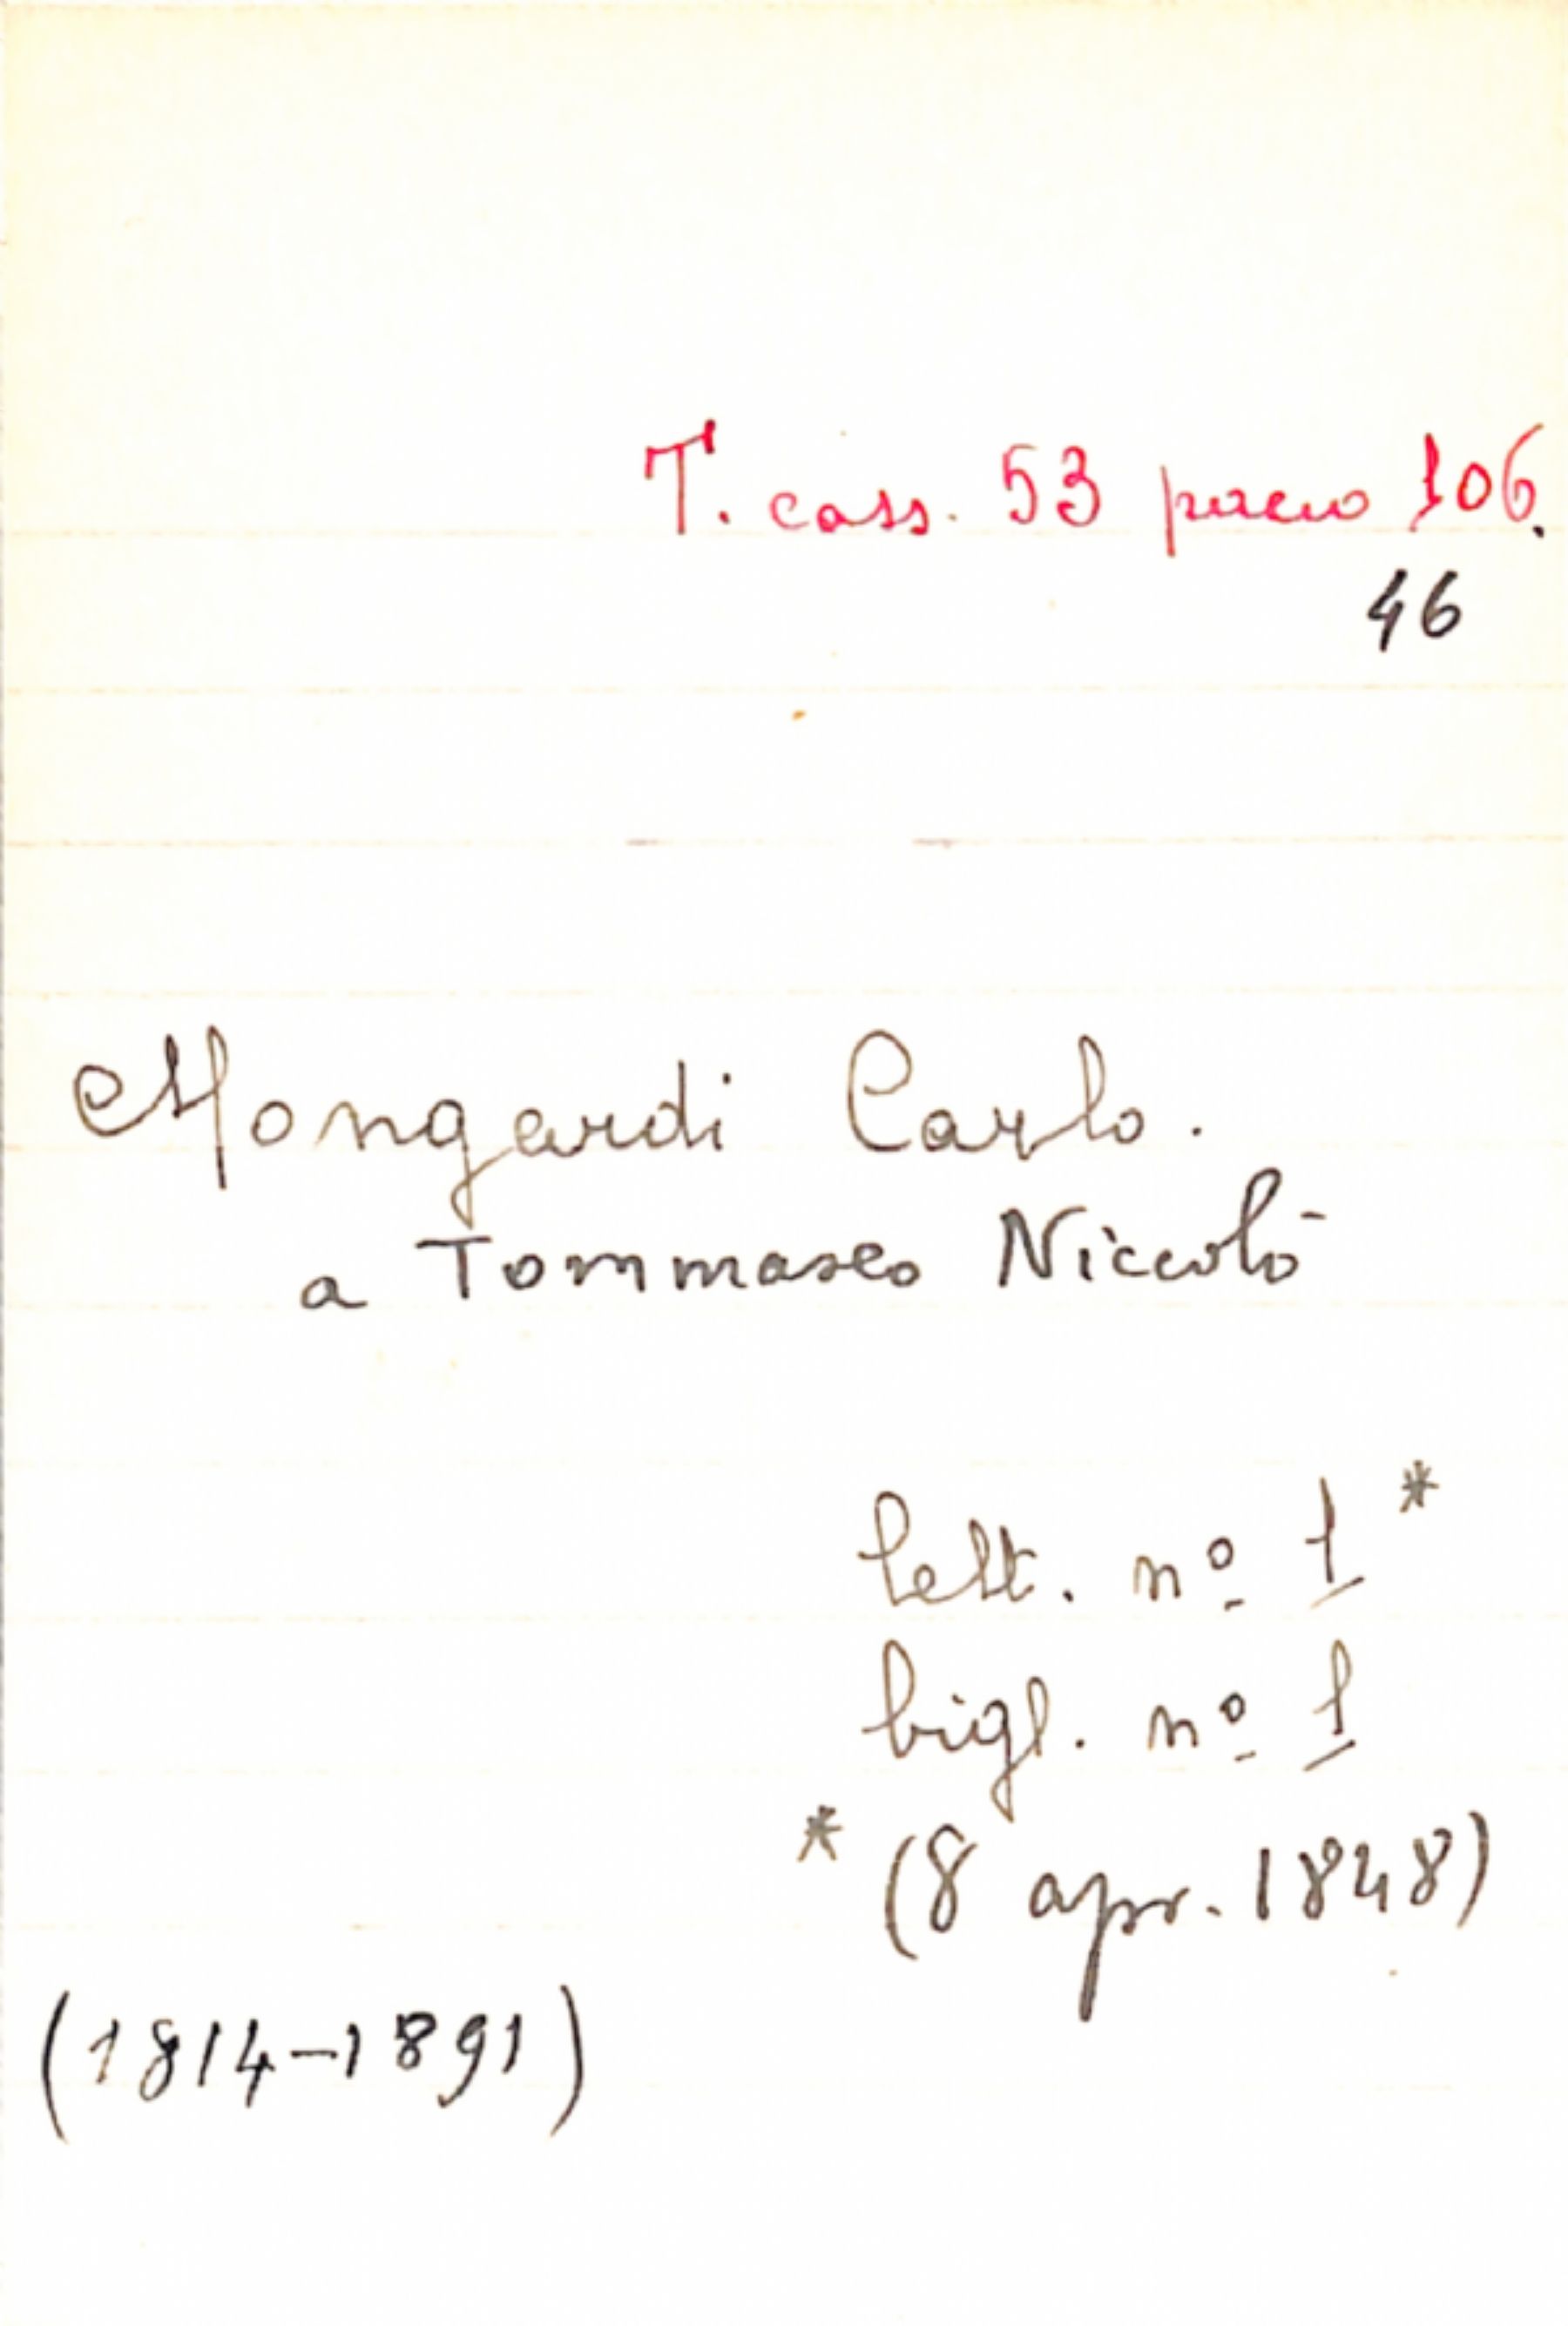 T. cass. 53 pacco 106.
46
Mongardi Carlo.
a Tommaseo Niccolò
lett. nº 1 *
bigl. nº 1
* (8 apr. 1848)
(1814-1891)